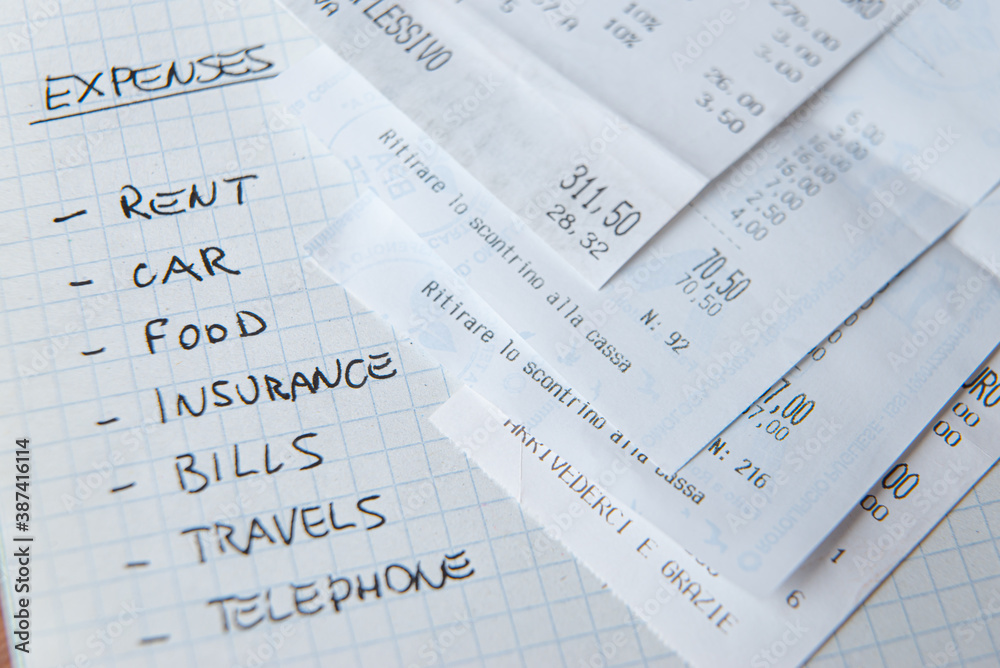 EXPENSES
- RENT
- CAR
- FOOD
- INSURANCE
- BILLS
- TRAVELS
- TELEPHONE
10%
10%
270.00
3.00
3.00
26.00
3.50
311,50
28,32
Ritirare lo scontrino alla cassa
6,00
3,00
16,00
16,00
7,00
2,50
4,00
70,50
70,50
N: 92
Ritirare lo scontrino alla cassa
7,00
7,00
N: 216
ARRIVEDERCI E GRAZIE
00
00
00
00
1
6
Adobe Stock | #387416114